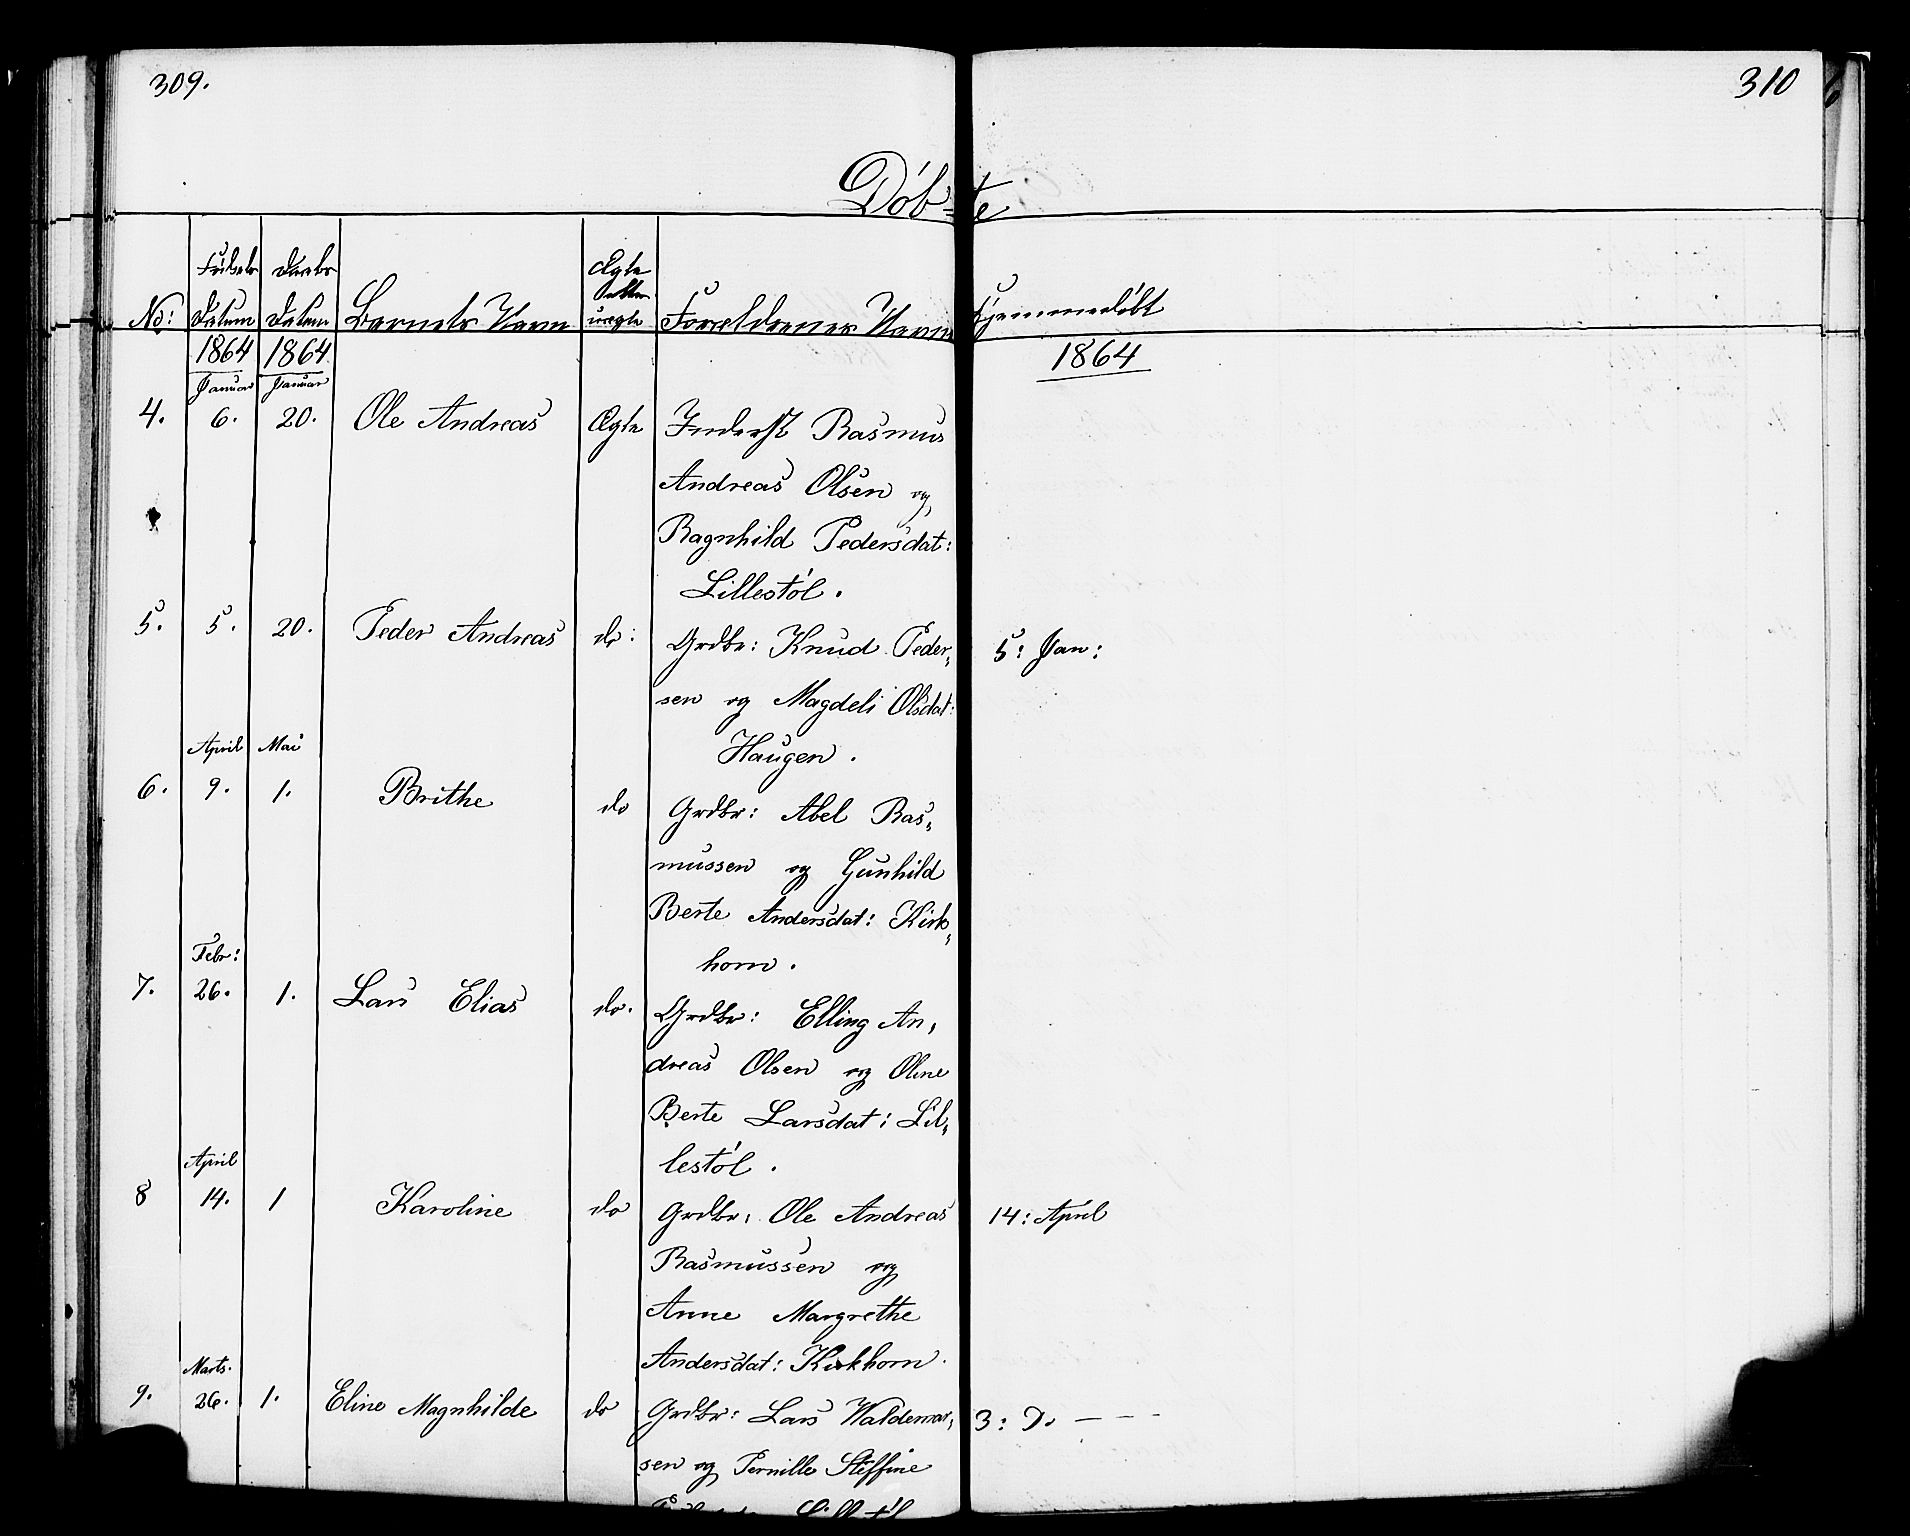 309.
310
Døb-te
No: Fødsels Datum Daabs Datum Barnets Navn Ægte eller uægte Forældrenes Navn Hjemmedøbt
1864 1864 1864
Januar Januar
4. 6. 20. Ole Andreas Ægte Inderst Rasmus
Andreas Olsen og
Ragnhild Pedersdat:
Lillestøl.
5. 5. 20. Peder Andreas do: Grdbr: Knud Peder- 5: Jan:
sen og Magdeli Olsdat:
Haugen.
April Mai
6. 9. 1. Brithe do Grdbr: Abel Ras-
mussen og Gunhild
Berte Andersdat: Kirk-
horn.
Febr:
7. 26. 1. Lars Elias do. Grdbr: Elling An-
dreas Olsen og Oline
Berte Larsdat: Lil-
lestøl.
April
8 14. 1 Karoline do Grdbr: Ole Andreas 14: April
Rasmussen og
Anne Margrethe
Andersdat: Kirkhorn.
Marts.
9. 26. 1. Eline Magnhilde do Grdbr: Lars Waldemar- 3: D. — — —
sen og Pernille Steffine
Lillestøl